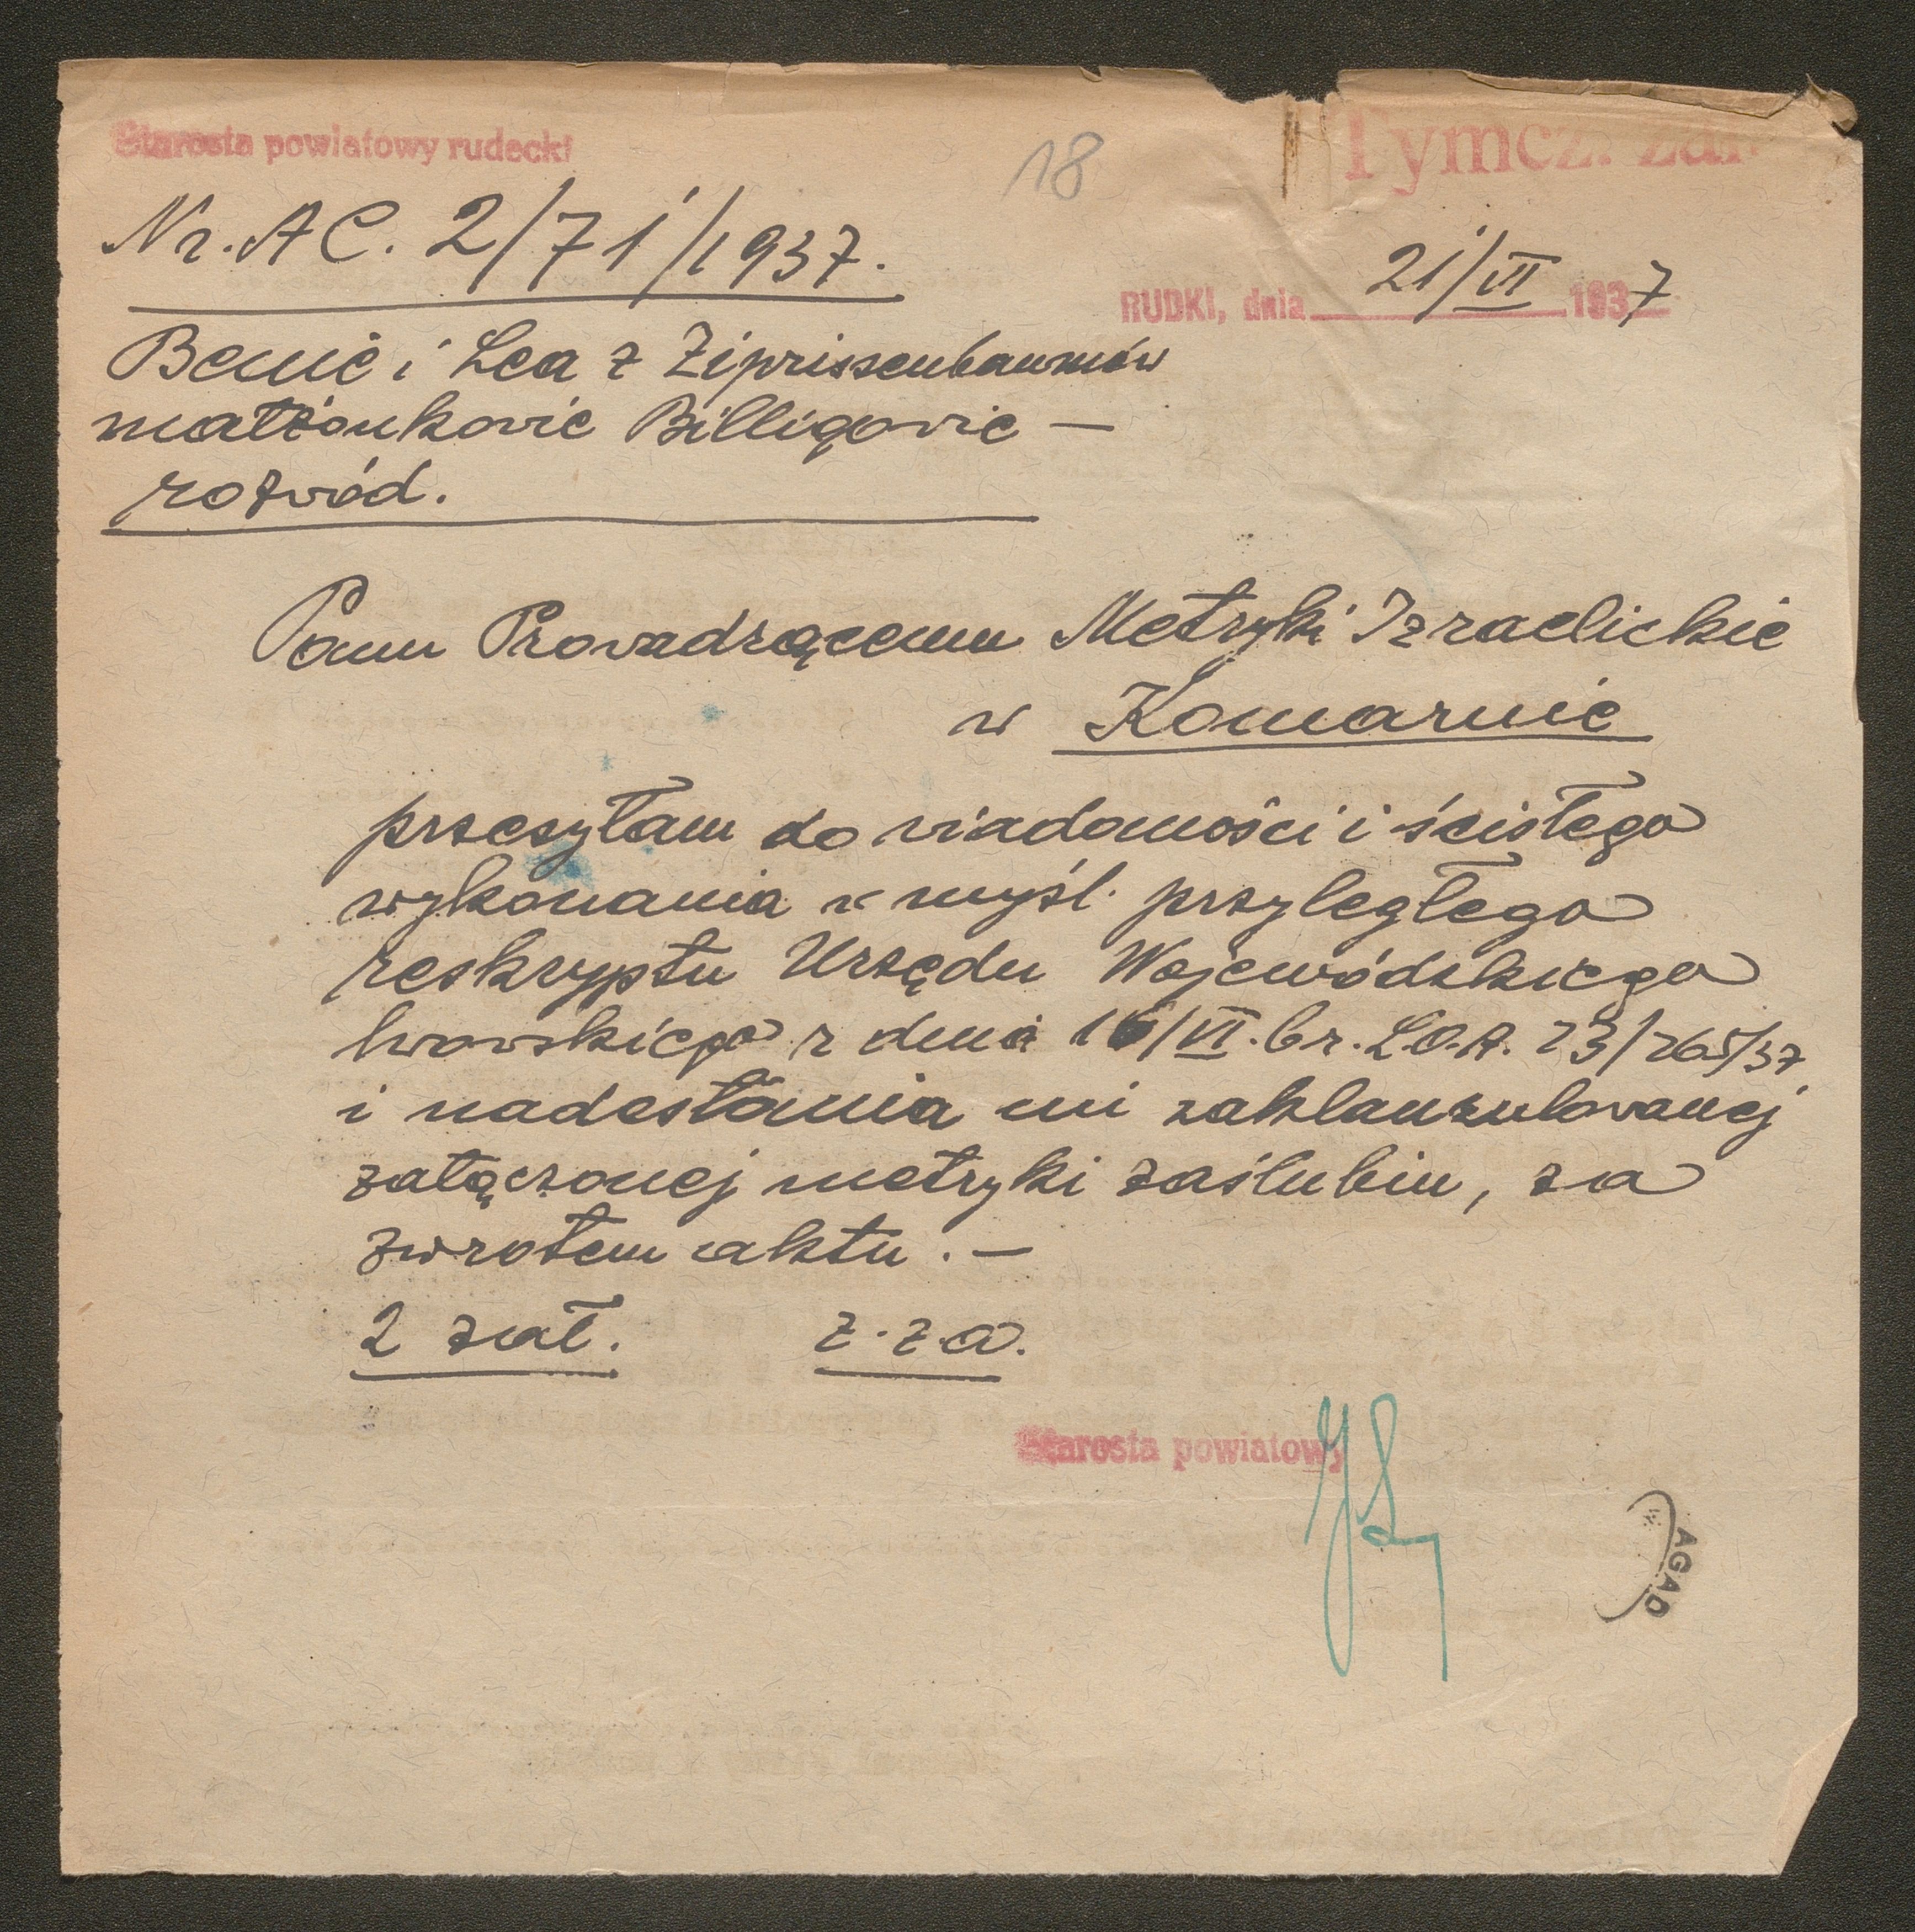 Starosta powiatowy rudecki
18
Tymcz.
Nr. AC. 2/71/1937.
RUDKI, dnia 21/VI 1937
Benie i Lea z Ziprissenbaumów
małżonkowie Billigowie —
rozwód.
Panu Prowadzącemu Metryki Izraelickie
w Komarnie
przesyłam do wiadomości i ścisłego
wykonania w myśl przyległego
reskryptu Urzędu Wojewódzkiego
lwowskiego z dnia 16/VI. br. L.O.A. 23/265/37
i nadesłania mi zaklauzulowanej
załączonej metryki zaślubin, za
zwrotem aktu. —
2 zał. z. z. a.
Starosta powiatowy
AGAD